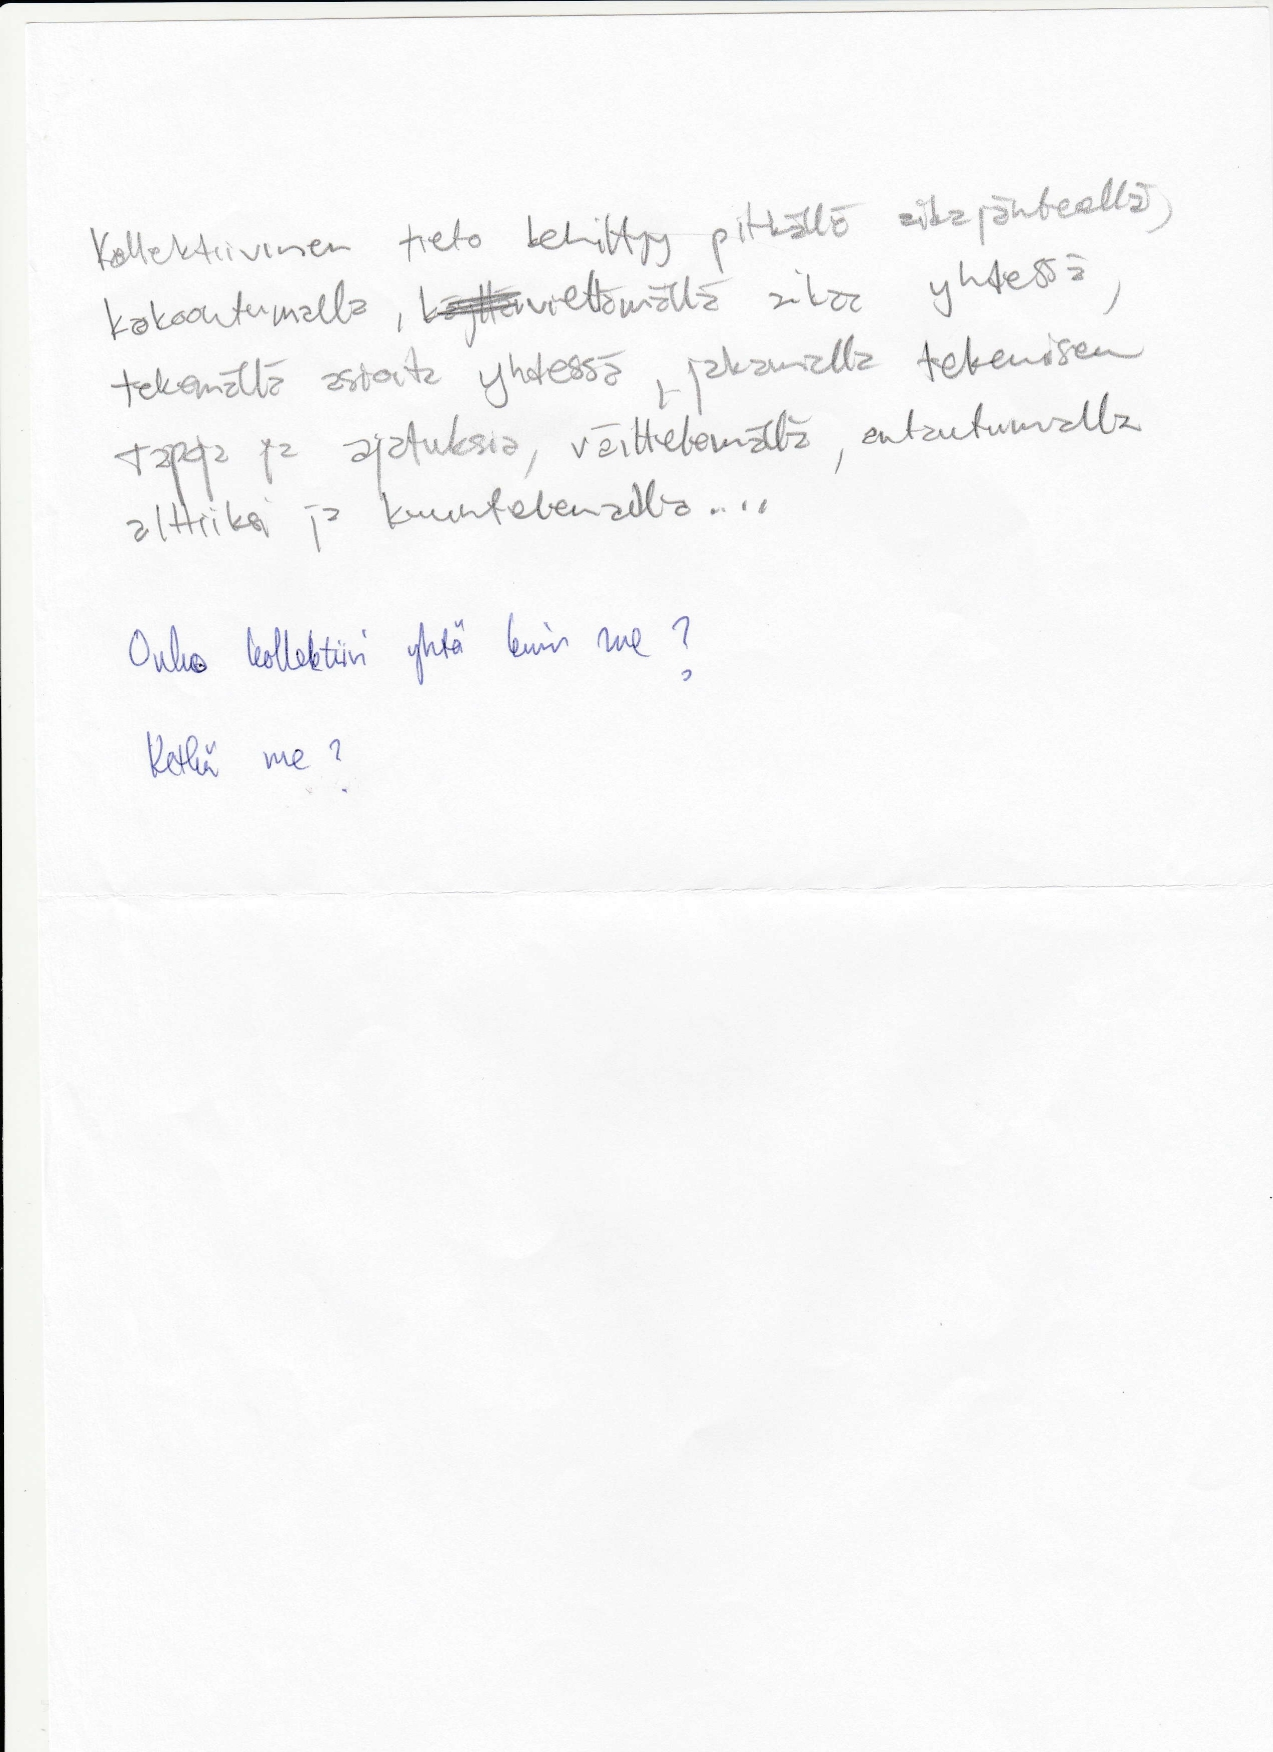 Kollektiivinen tieto kehittyy pitkällä aikajänteellä,
kokoontumalla, viettämällä aikaa yhtessä,
tekemällä asioita yhdessä, jakamalla tekemisen
tapoja ja ajatuksia, väittelemällä, antautumalla
alttiiksi ja kuuntelemalla....
Onko kollektiivi yhtä kuin me?
Ketkä me?